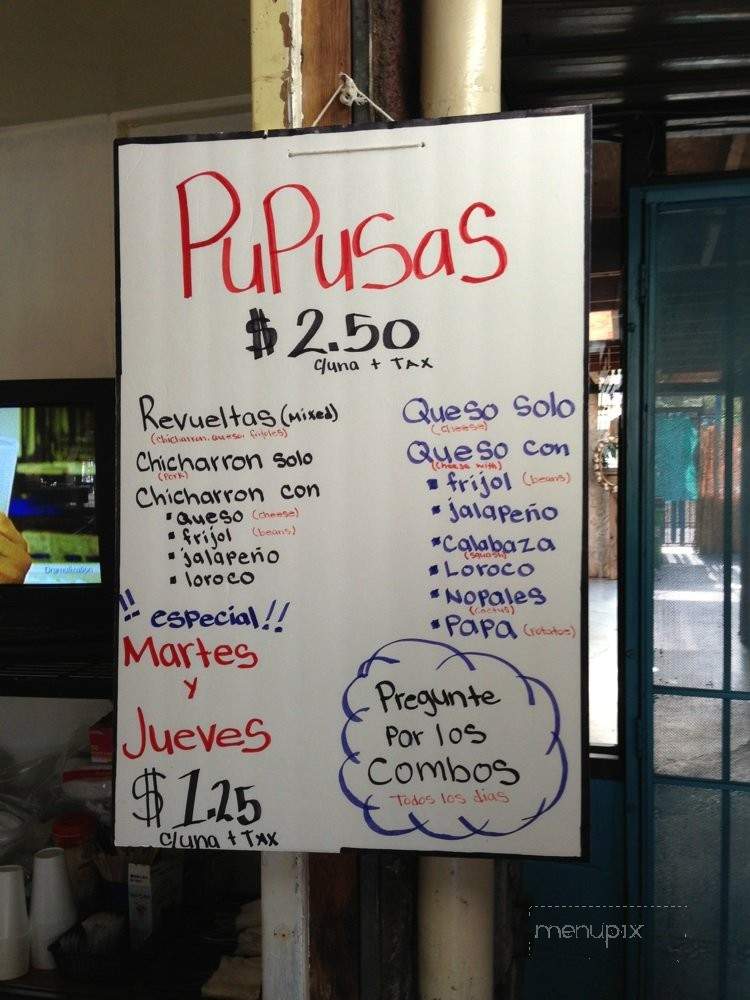 PuPusas
$ 2.50
c/una + TAX
Revueltas (Mixed)
(chicharron, queso, frijoles)
Chicharron solo
(Pork)
Chicharron con
▪ queso (cheese)
▪ frijol (beans)
▪ jalapeño
▪ loroco
!! especial !!
Martes
y
Jueves
$ 1.25
c/una + Tax
Queso solo
(cheese)
Queso con
(cheese with)
▪ frijol (beans)
▪ jalapeño
▪ Calabaza
(squash)
▪ Loroco
▪ Nopales
(cactus)
▪ Papa (Potatoe)
Pregunte
Por los
Combos
Todos los dias
Dramatization
menupix